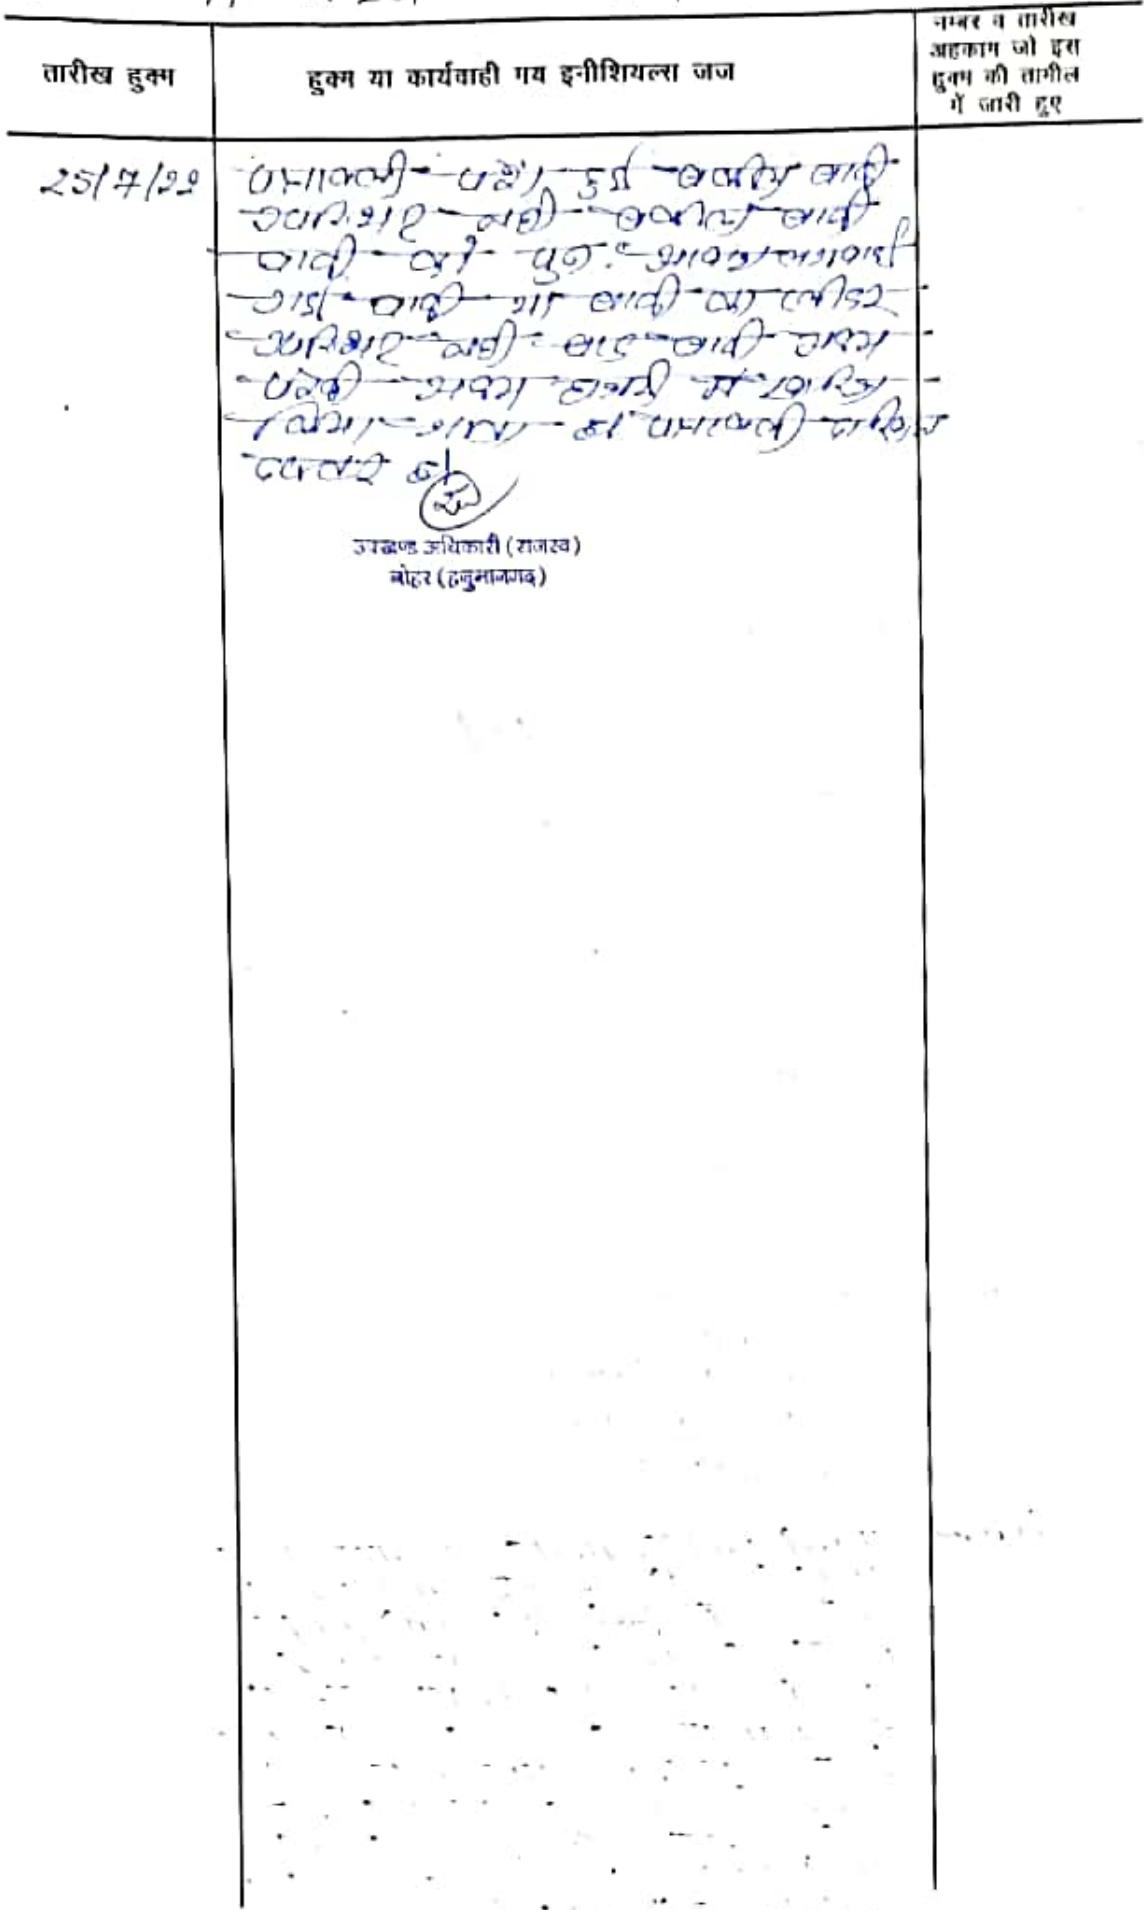 तारीख हुक्म
हुक्म या कार्यवाही मय इनीशियल्स जज
नम्बर व तारीख
अहकाम जो इस
हुक्म की तामील
में जारी हुए
25/7/22
पत्रावली पेश हुई वकील वादी
उपस्थित नही वकील वादी
वादी को पुनः आवाज लगवाई
गई वादी या वादी का प्लीडर
उपस्थित नही वाद वादी अदम
पैरवी अदम हाजरी में खारिज
किया जाता है पत्रावली दाखिल
दफ्तर हो
उपखण्ड अधिकारी (राजस्व)
नोहर (हनुमानगढ)